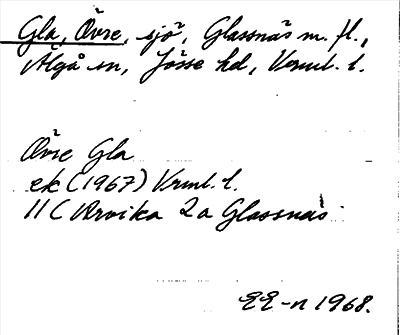 Gla, Övre, sjö, Glassnäs m. fl.,
Älgå sn, Jösse hd, Värml. l.
Övre Gla
ek (1967) Värml. l.
11 C Arvika 2a Glassnäs
EE-n 1968.